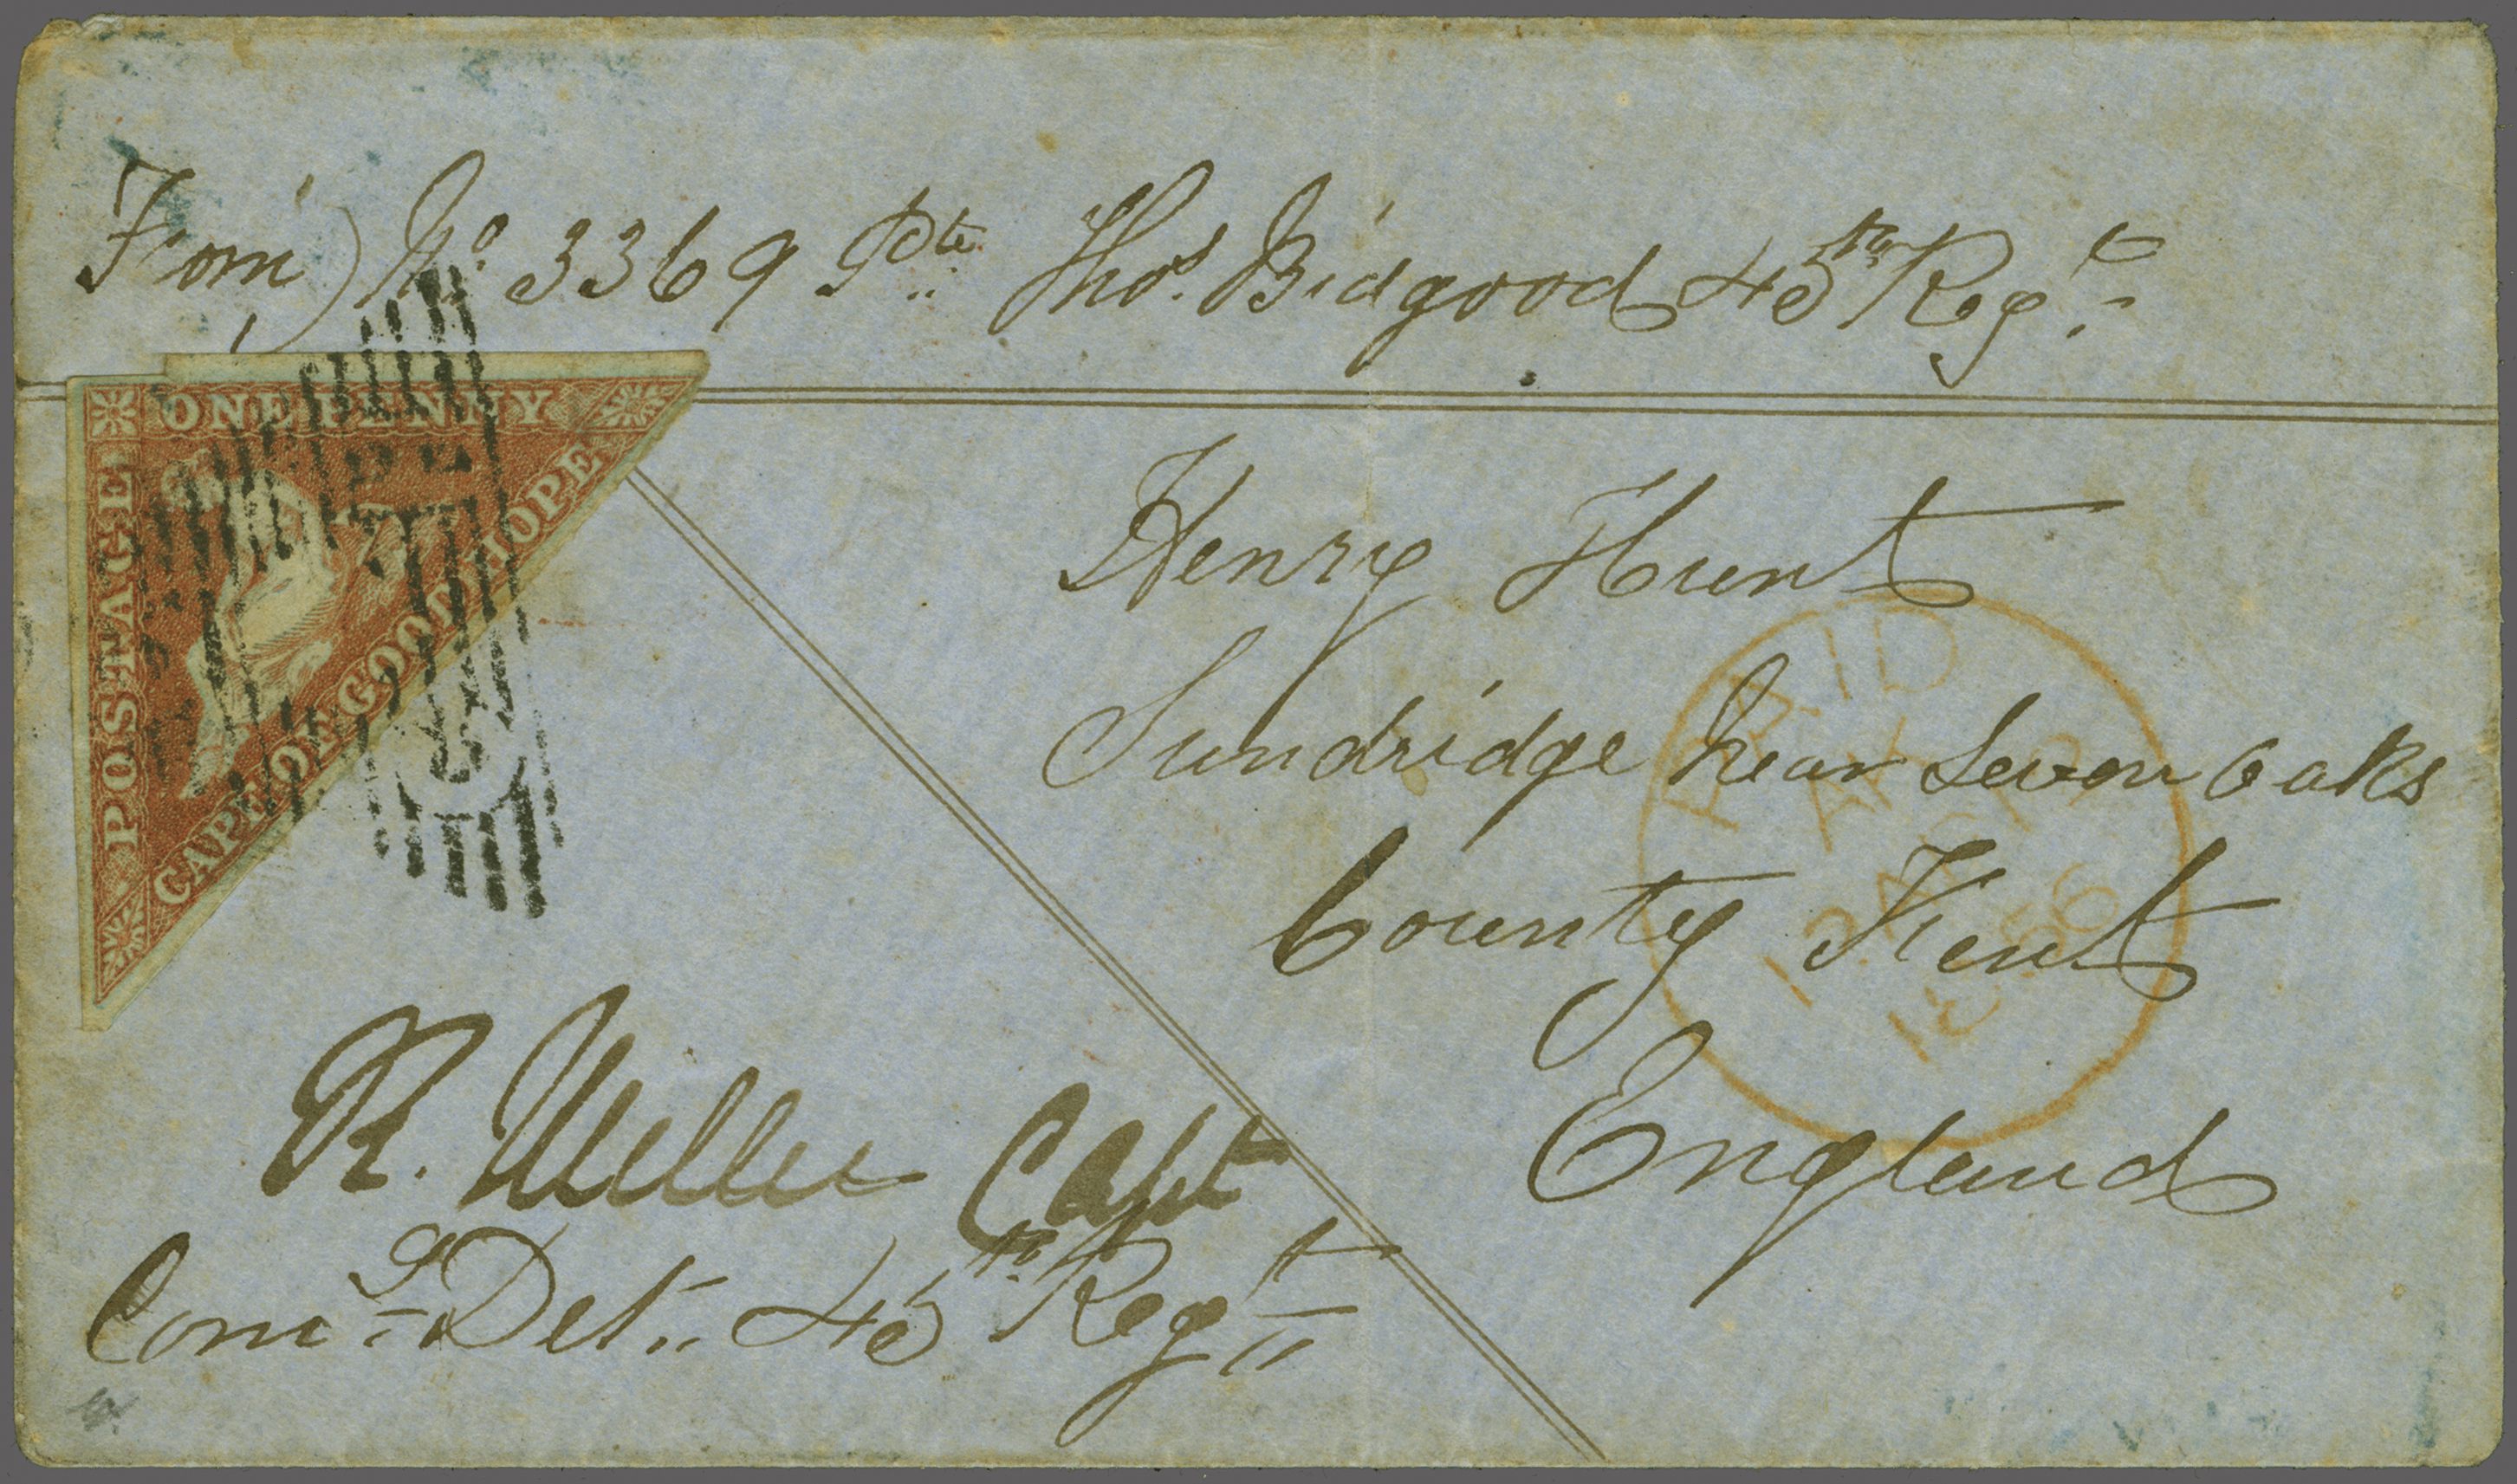 From) No. 3369 Pte. Thos. Bidgood 45th Regt.
ONE PENNY
POSTAGE
CAPE OF GOOD HOPE
Henry Hunt
Sundridge near Seven Oaks
County Kent
England
PAID
12 AP 12
1856
R. Miller Capt
Comg. Det. 45th Regt.